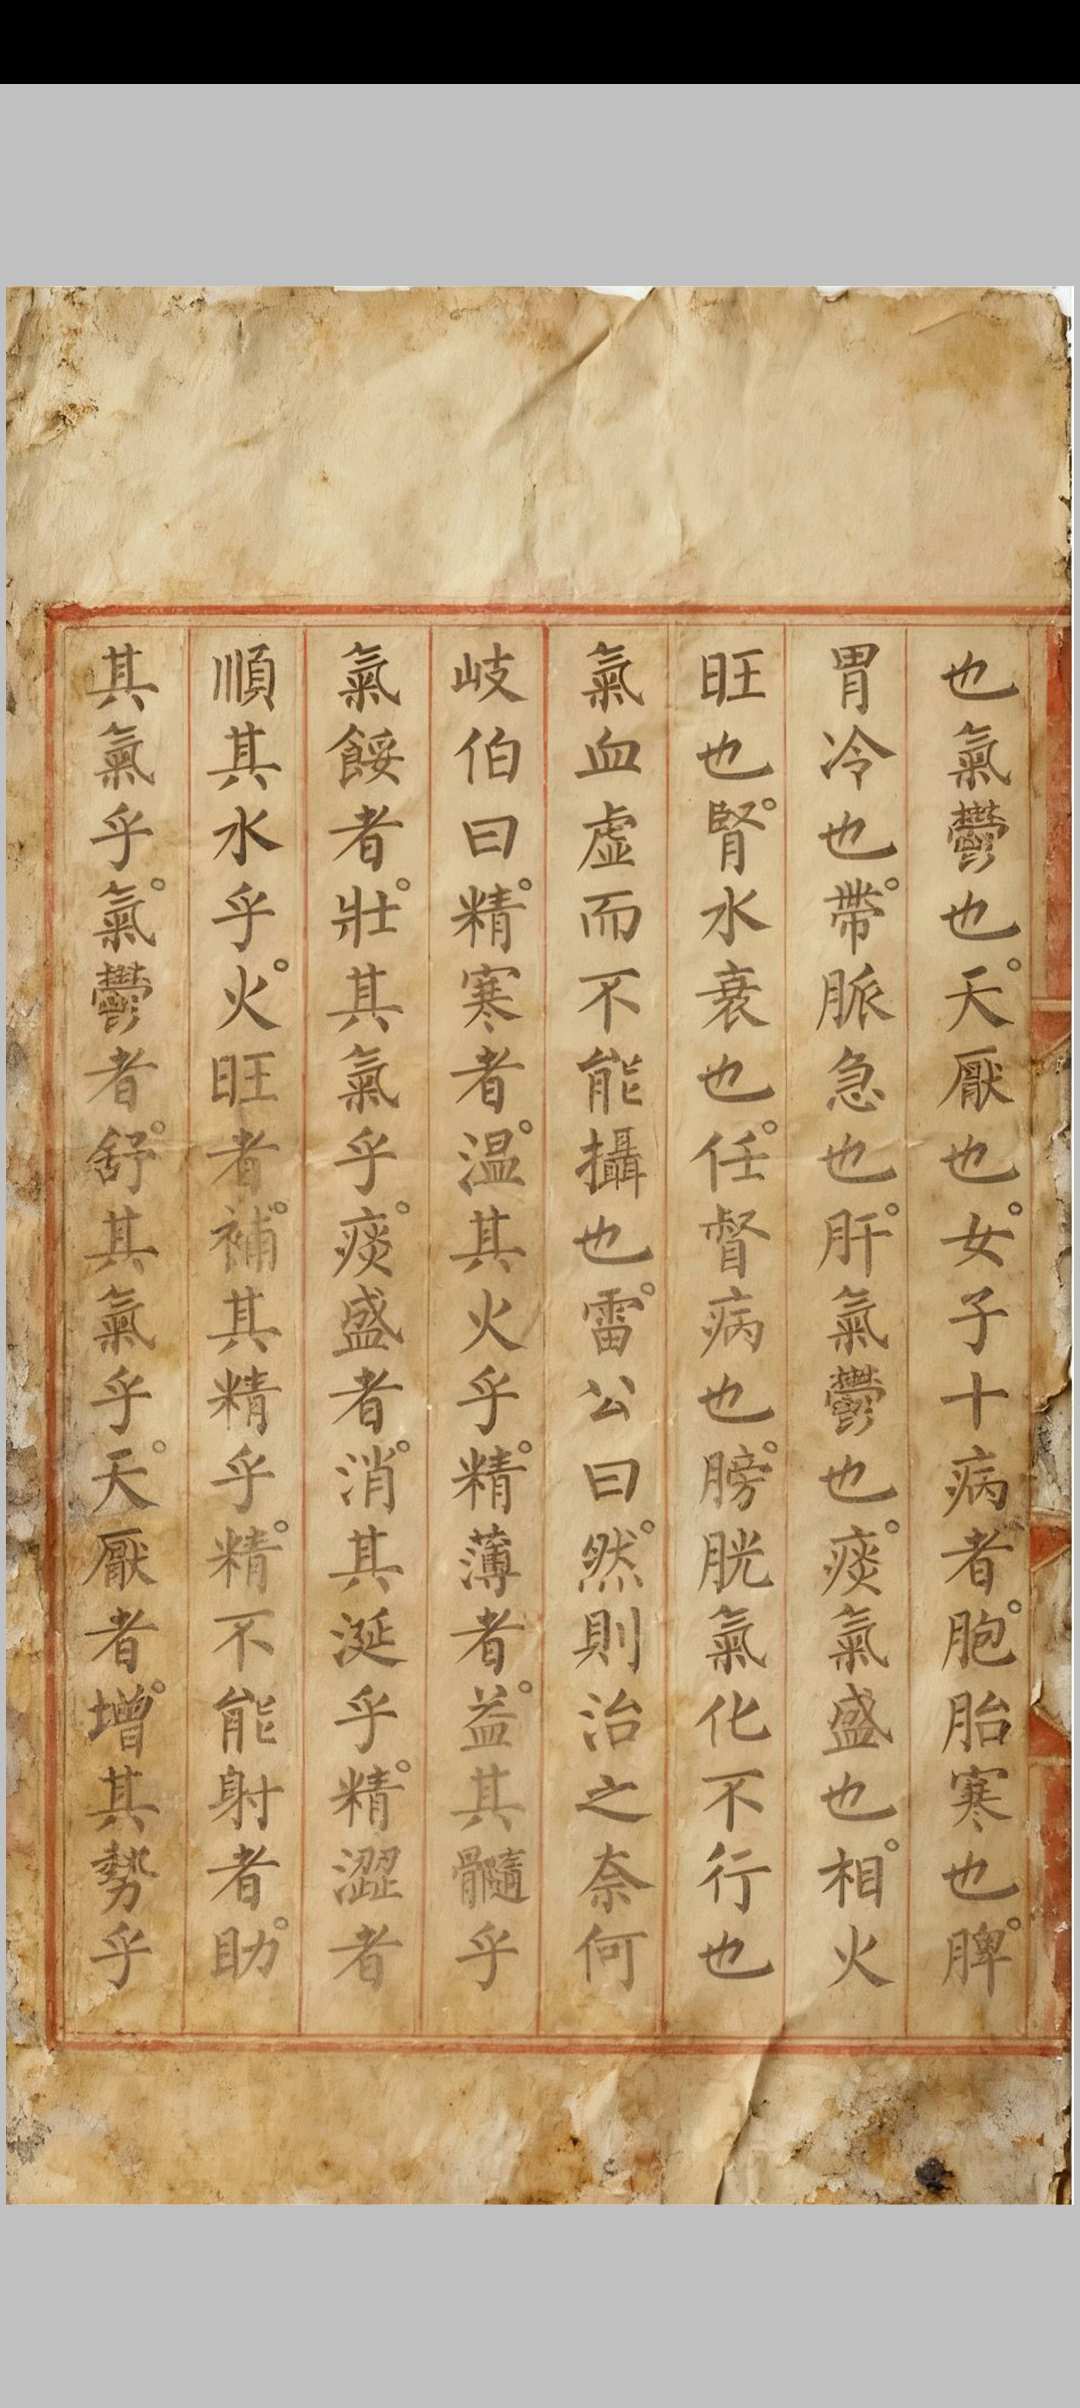 也氣鬱也天厭也女子十病者胞胎寒也脾
胃冷也帶脈急也肝氣鬱也痰氣盛也相火
旺也腎水衰也任督病也膀胱氣化不行也
氣血虛而不能攝也雷公曰然則治之奈何
岐伯曰精寒者温其火乎精薄者益其髓乎
氣餒者壯其氣乎痰盛者消其涎乎精澀者
順其水乎火旺者補其精乎精不能射者助
其氣乎氣鬱者舒其氣乎天厭者增其勢乎